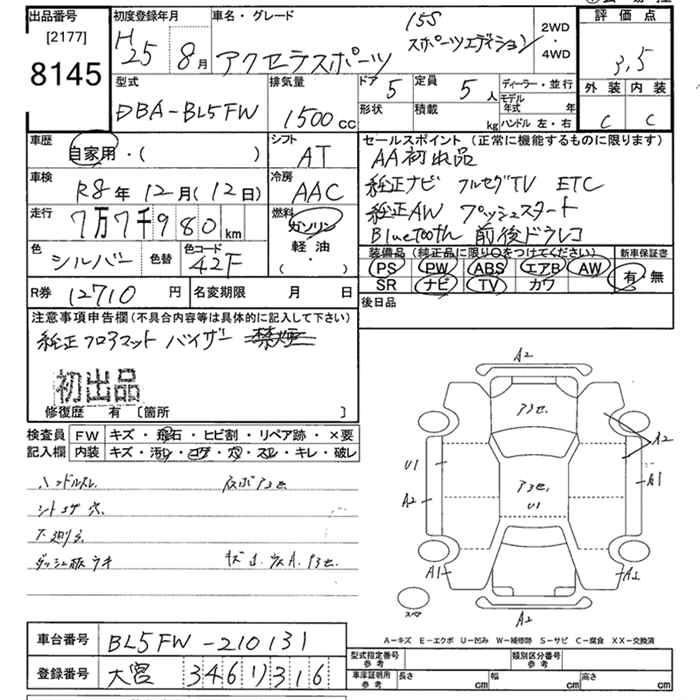 出品番号
[2177]
8145
初度登録年月
H25 8月
車名・グレード
アクセラスポーツ
15S
スポーツエディション
2WD
・
4WD
評価点
3.5
外装 内装
C C
型式
DBA-BL5FW
排気量
1500cc
ドア 5
定員 5人
形状
積載 kg
ディーラー・並行
モデル年式 年
ハンドル 左・右
車歴
自家用・( )
シフト
AT
セールスポイント (正常に機能するものに限ります)
AA初出品
純正ナビ フルセグTV ETC
純正AW プッシュスタート
Bluetooth 前後ドラレコ
車検
R8年12月(12日)
冷房
AAC
走行
7万7千980km
燃料
ガソリン
軽油
( ・ )
色
シルバー
色替
色コード
42F
装備品 (純正品に限り○をつけてください)
PS PW ABS エアB AW
SR ナビ TV カワ
新車保証書
有・無
R券 12710円
名変期限 月 日
後日品
注意事項申告欄(不具合内容等は具体的に記入して下さい)
純正フロアマット バイザー 禁煙
初出品
修復歴 有 [箇所 ]
検査員記入欄
FW キズ・飛石・ヒビ割・リペア跡・×要
内装 キズ・汚レ・コゲ・穴・スレ・キレ・破レ
ハンドルスレ
シートコゲ穴
ダッシュ板ウキ
A2
アヨセ
A2
U1
A2
アヨセ
U1
A1
A1
A2
スペア
A-キズ E-エクボ U-凹み W-補修跡 S-サビ C-腐食 XX-交換済
車台番号 BL5FW-210131
登録番号 大宮 346 リ 316
型式指定番号 参考
類別区分番号 参考
車庫証明用 参考
長さ cm
幅 cm
高さ cm